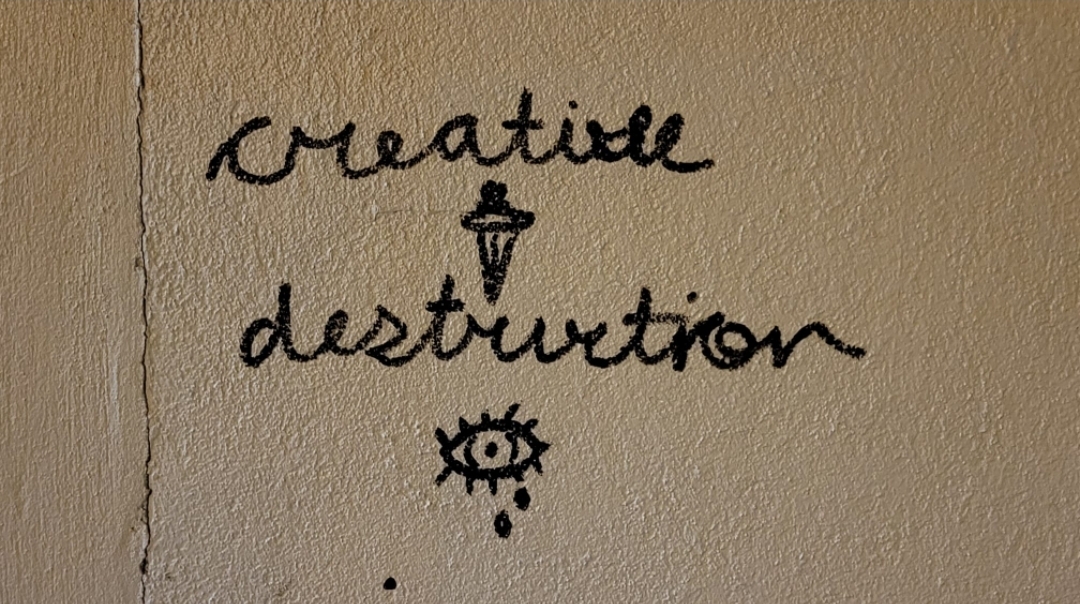 creative
destruction